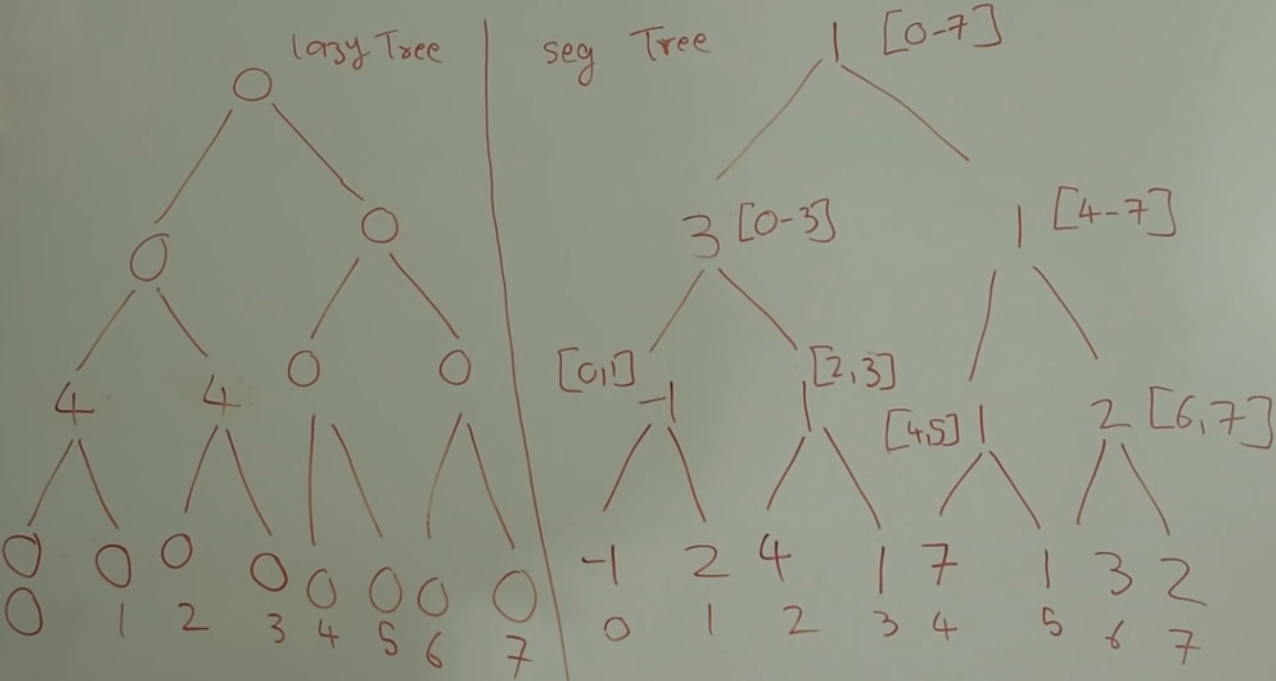 lazy Tree
0
0 0
4 4 0 0
0 0 0 0 0 0 0 0
0 1 2 3 4 5 6 7
seg Tree
1 [0-7]
3 [0-3] 1 [4-7]
[0,1] -1 1 [2,3] [4,5] 1 2 [6,7]
-1 2 4 1 7 1 3 2
0 1 2 3 4 5 6 7